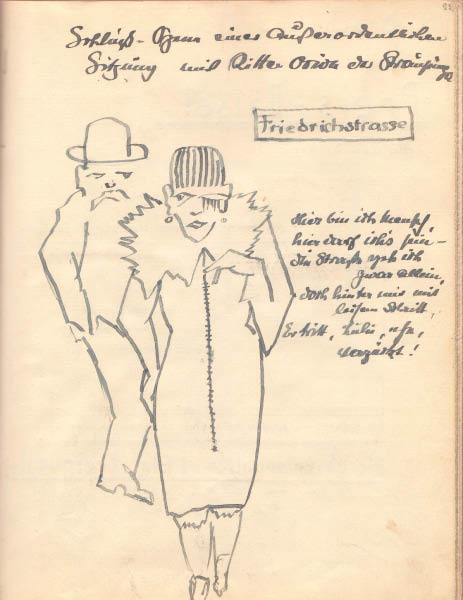 Schluß-Szene einer Außerordentlichen
Sitzung mit Ritter
Friedrichstrasse
Hier bin ich Mensch,
hier darf ich's sein —
die Straße geh ich
zwar allein,
doch hinter mir mit
leisem Schritt
Er tritt, kühn,
verzückt!